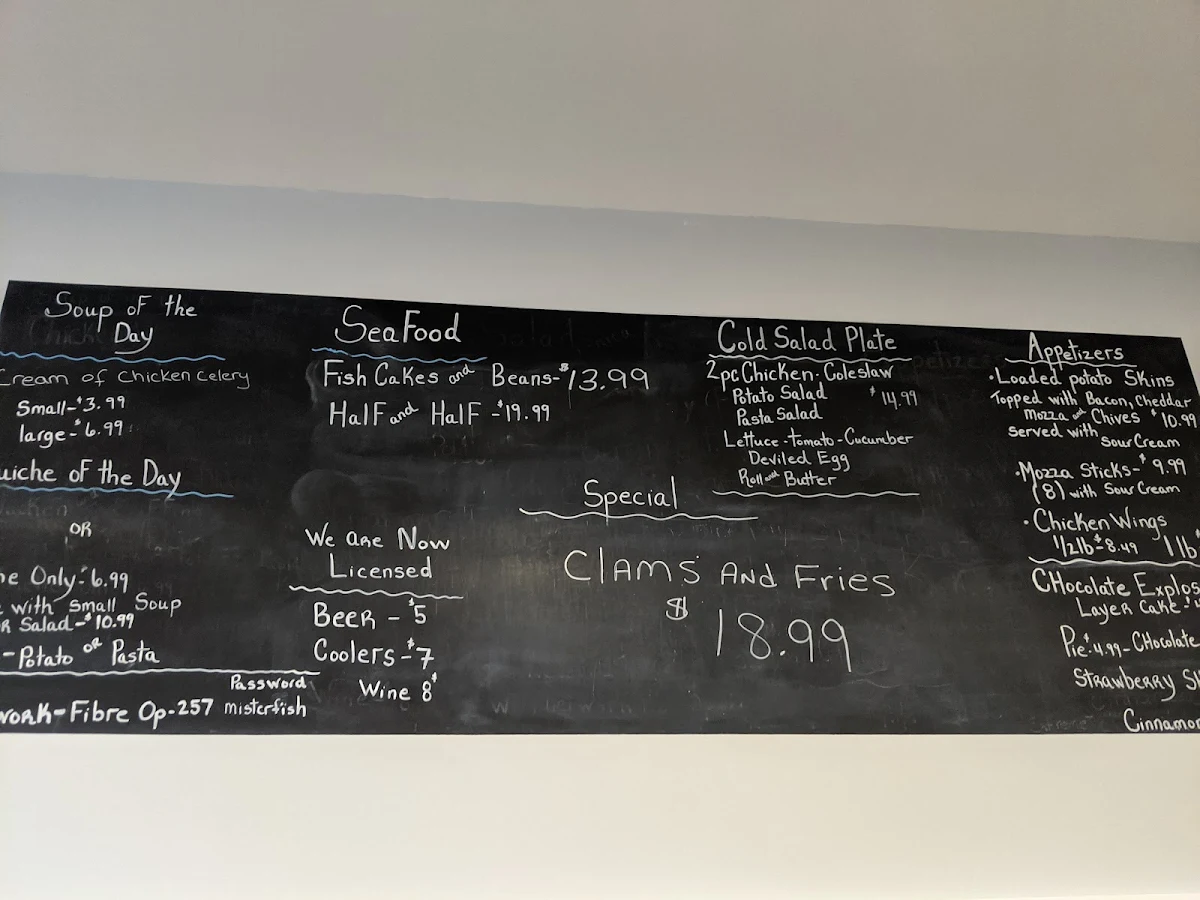 Soup of the
Day
Cream of Chicken Celery
Small-$3.99
large-$6.99
uiche of the Day
OR
e Only-$6.99
with Small Soup
R Salad-$10.99
-Potato or Pasta
Password
work-Fibre Op-257 misterfish
SeaFood
Fish Cakes and Beans-$13.99
Half and Half-$19.99
We are Now
Licensed
Beer-$5
Coolers-$7
Wine 8$
Special
Clams And Fries
$18.99
Cold Salad Plate
2pc Chicken-Coleslaw
Potato Salad $14.99
Pasta Salad
Lettuce-tomato-Cucumber
Deviled Egg
Roll and Butter
Appetizers
•Loaded potato Skins
Topped with Bacon, Cheddar
Mozza and Chives $10.99
served with Sour Cream
•Mozza Sticks-$9.99
(8) with Sour Cream
•Chicken Wings
1/2lb-$8.49 1lb$
CHocolate Explos
Layer Cake-$
Pie-$4.99-CHocolate
Strawberry S
Cinnamon